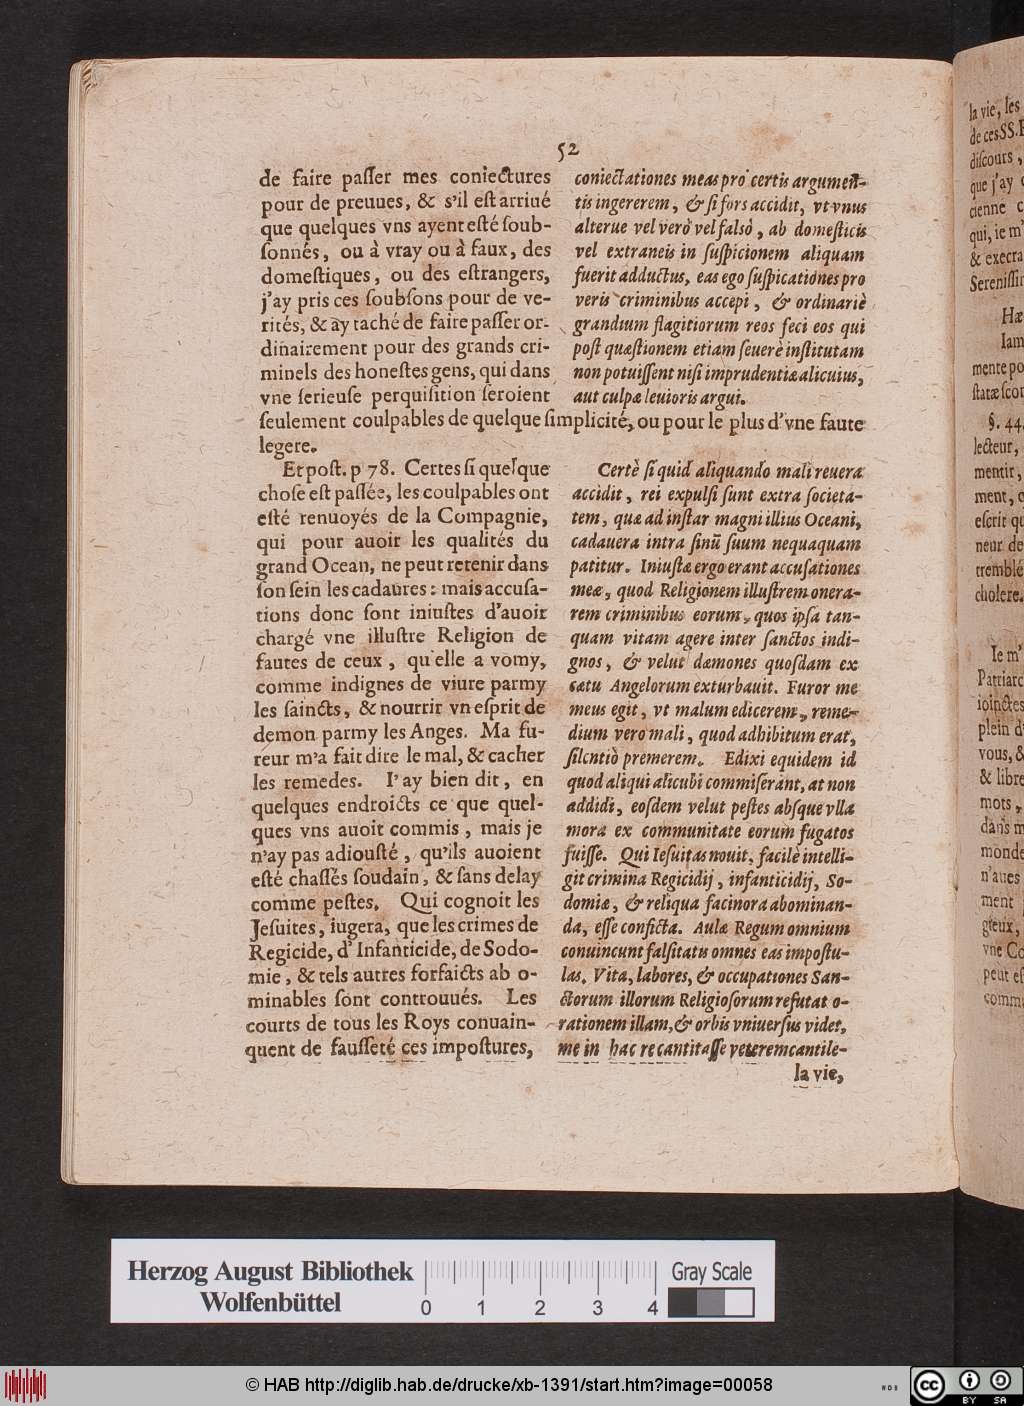 52
de faire paſſer mes coniectures
pour de preuues, & s'il eſt arriué
que quelques vns ayent eſté ſoub-
ſonnés, ou à vray ou à faux, des
domeſtiques, ou des eſtrangers,
j'ay pris ces ſoubſons pour de ve-
rités, & ay taché de faire paſſer or-
dinairement pour des grands cri-
minels des honeſtes gens, qui dans
vne ſerieuſe perquiſition ſeroient
ſeulement coulpables de quelque ſimplicité, ou pour le plus d'vne faute
legere.
coniectationes meas pro certis argumen-
tis ingererem, & ſi fors accidit, vt vnus
alterue vel verò vel falsò, ab domeſticis
vel extraneis in ſuſpicionem aliquam
fuerit adductus, eas ego ſuſpicationes pro
veris criminibus accepi, & ordinariè
grandium flagitiorum reos feci eos qui
poſt quæſtionem etiam ſeuerè inſtitutam
non potuiſſent niſi imprudentiæ alicuius,
aut culpæ leuioris argui.
Et poſt. p 78. Certes ſi quelque
choſe eſt paſſée, les coulpables ont
eſté renuoyés de la Compagnie,
qui pour auoir les qualités du
grand Ocean, ne peut retenir dans
ſon ſein les cadaures: mais accuſa-
tions donc ſont iniuſtes d'auoir
chargé vne illuſtre Religion de
fautes de ceux, qu'elle a vomy,
comme indignes de viure parmy
les ſaincts, & nourrir vn eſprit de
demon parmy les Anges. Ma fu-
réur m'a fait dire le mal, & cacher
les remedes. I'ay bien dit, en
quelques endroicts ce que quel-
ques vns auoit commis, mais je
n'ay pas adiouſté, qu'ils auoient
eſté chaſſés ſoudain, & ſans delay
comme peſtes. Qui cognoit les
Jeſuites, iugera, que les crimes de
Regicide, d'Infanticide, de Sodo-
mie, & tels autres forfaicts ab o-
minables ſont controuués. Les
courts de tous les Roys conuain-
quent de fauſſeté ces impoſtures,
Certè ſi quid aliquando mali reuera
accidit, rei expulſi ſunt extra ſocieta-
tem, quæ ad inſtar magni illius Oceani,
cadauera intra ſinũ ſuum nequaquam
patitur. Iniuſtæ ergo erant accuſationes
meæ, quod Religionem illuſtrem onera-
rem criminibus eorum, quos ipſa tan-
quam vitam agere inter ſanctos indi-
gnos, & velut dæmones quoſdam ex
cætu Angelorum exturbauit. Furor me
meus egit, vt malum edicerem, reme-
dium vero mali, quod adhibitum erat,
ſilentiò premerem. Edixi equidem id
quod aliqui alicubi commiſerant, at non
addidi, eoſdem velut peſtes abſque vlla
mora ex communitate eorum fugatos
fuiſſe. Qui Ieſuitas nouit, facilè intelli-
git crimina Regicidij, infanticidij, So-
domiæ, & reliqua facinora abominan-
da, eſſe conficta. Aulæ Regum omnium
conuincunt falſitatis omnes eas impoſtu-
las. Vita, labores, & occupationes San-
ctorum illorum Religioſorum refutat o-
rationem illam, & orbis vniuerſus videt,
me in hac re cantitaſſe veterem cantile-
la vie,
la vie, les
de ces SS.
diſcours,
que j'ay
cienne
qui, ie m'
& execra
Sereniſſi
Hæ
Iam
mente po
ſtatæ ſcor
§. 44.
lecteur,
mentir,
ment,
eſcrit
neur de
tremblé
cholere.
Ie m'
Patriarc
ioinctes
plein d'
vous, &
& libre
mots,
dans m
monde
n'aues
ment
grieux,
vne Co
peut eſ
comm
Herzog August Bibliothek
Wolfenbüttel
0 1 2 3 4
Gray Scale
© HAB http://diglib.hab.de/drucke/xb-1391/start.htm?image=00058
cc BY SA